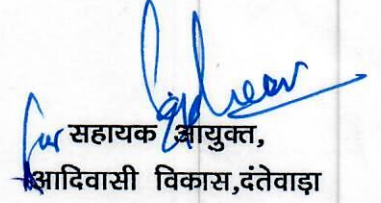 for सहायक आयुक्त,
आदिवासी विकास,दंतेवाड़ा